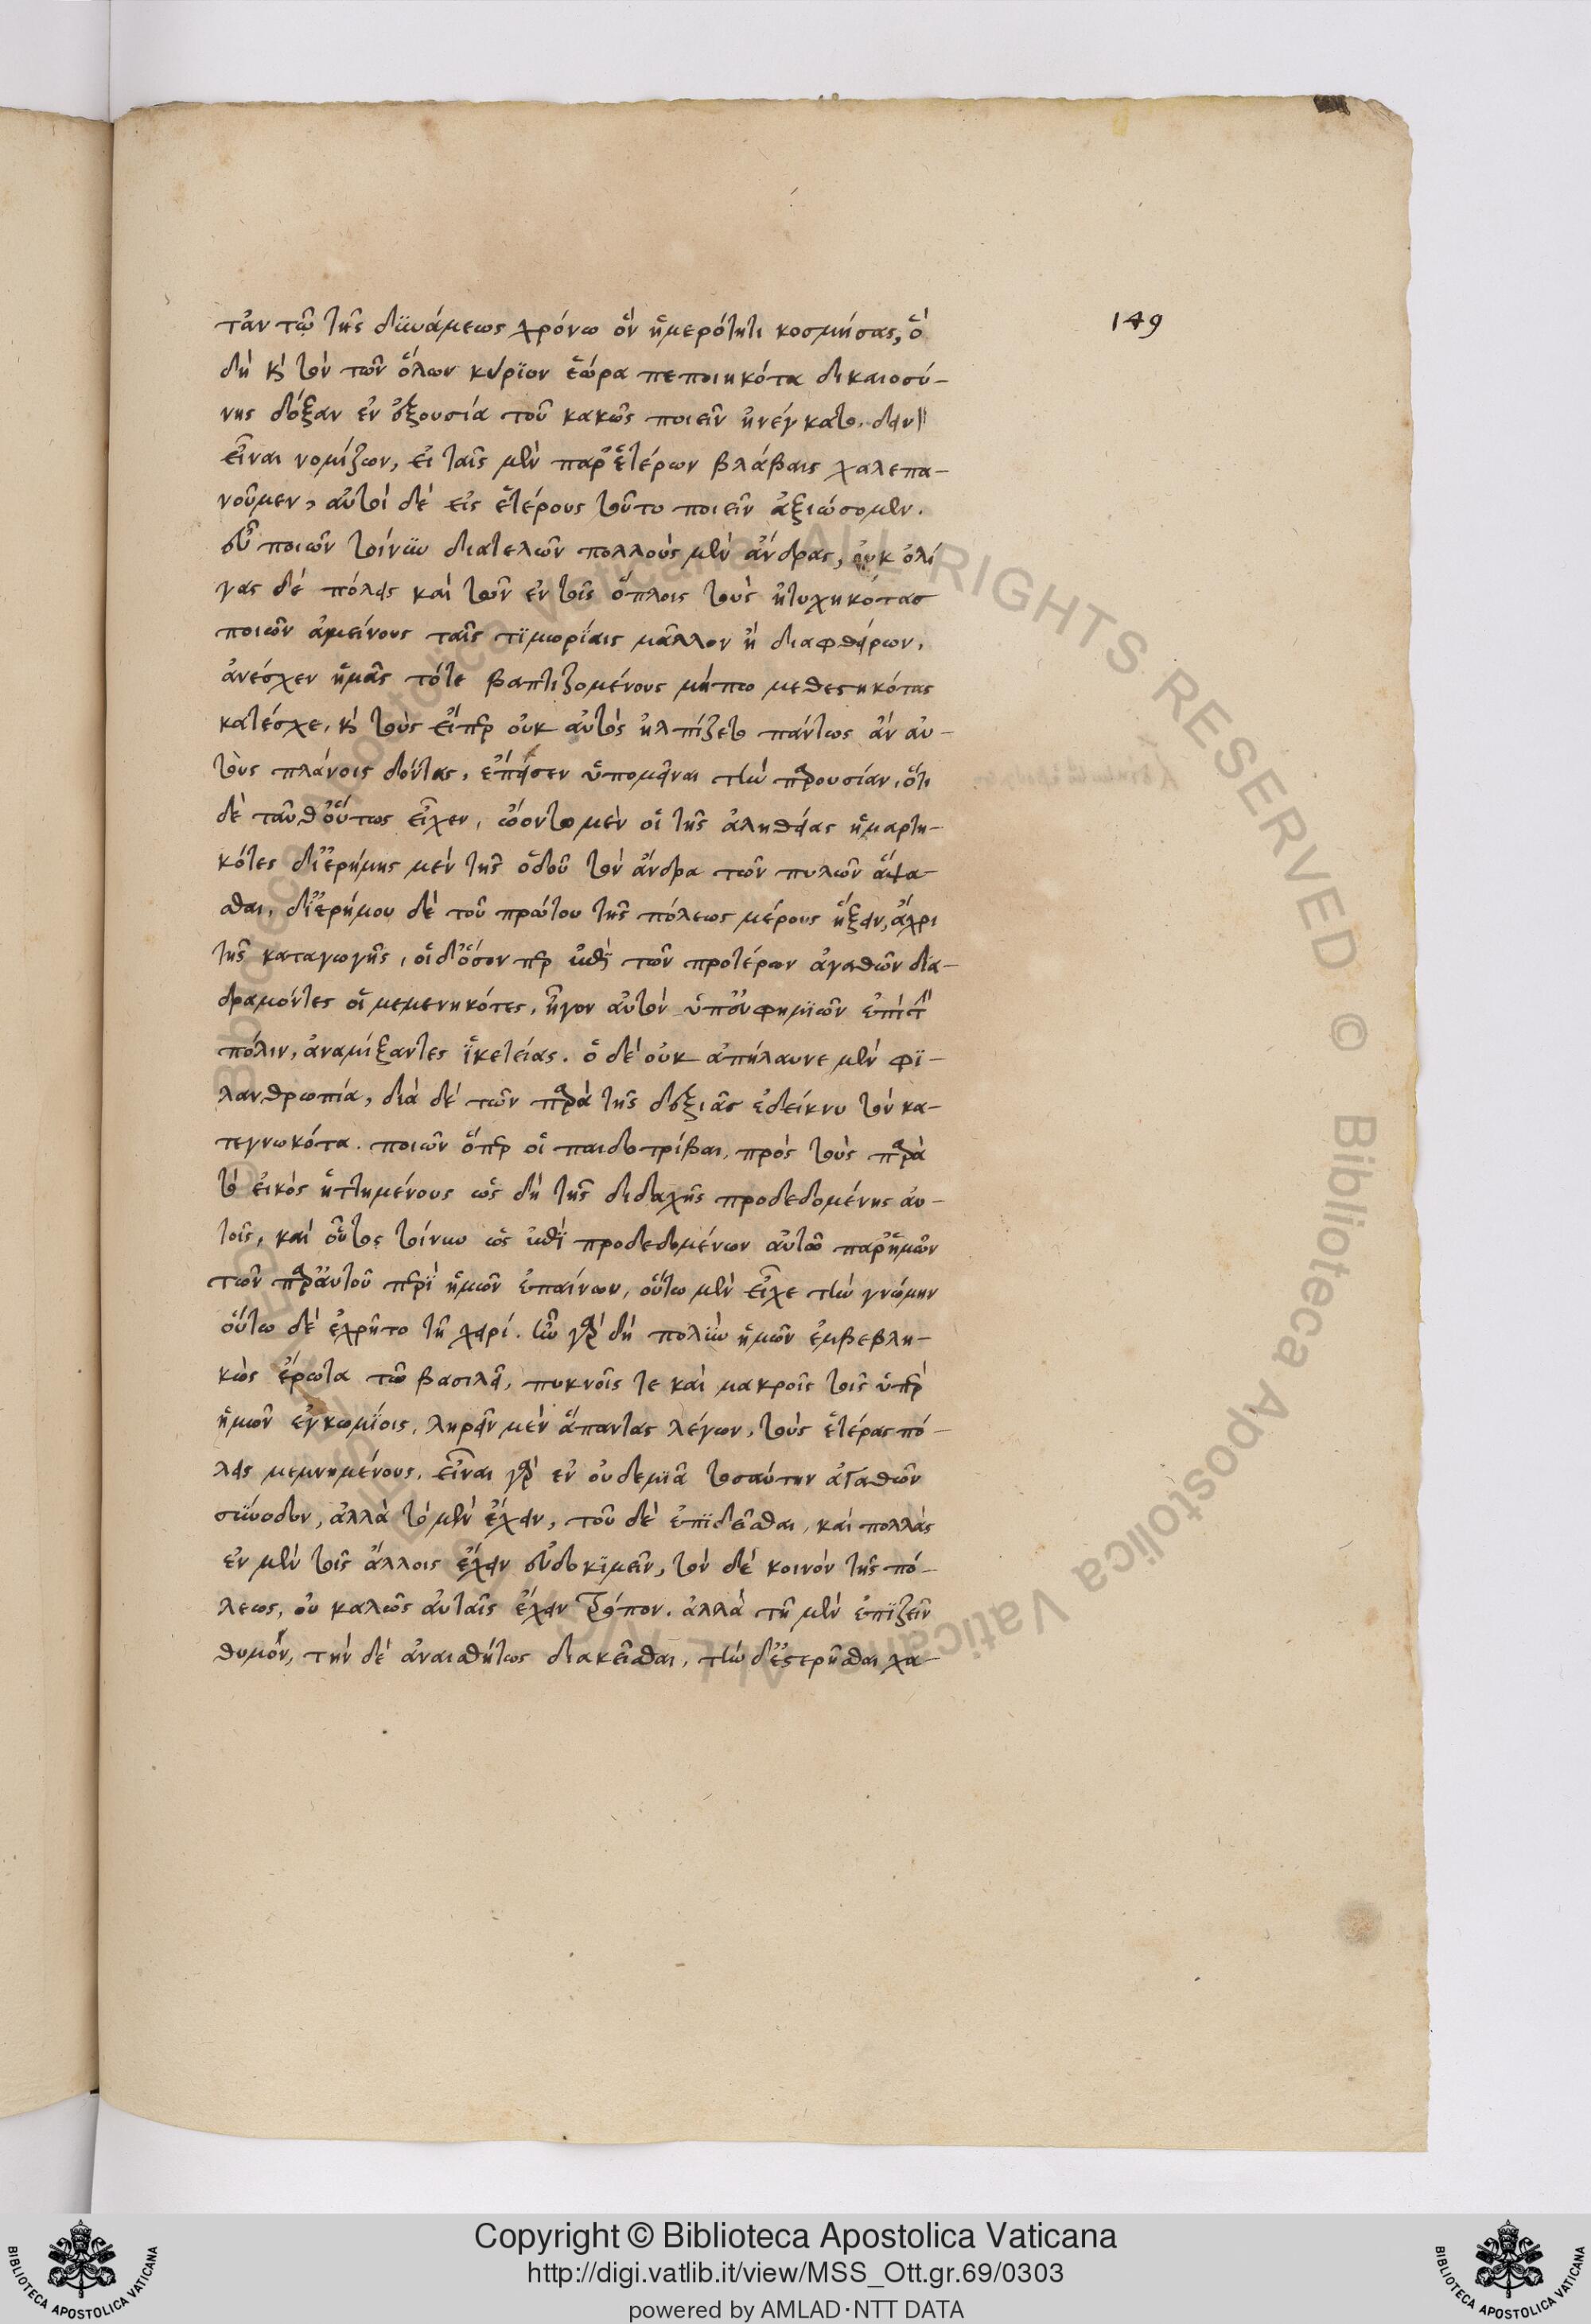 149
τᾶν τῷ τῆς δυνάμεως χρόνω ὃν ἡμερότητι κοσμήσας, ὃ
δὴ κ τὸν τῶν ὅλων κύριον ἑώρα πεποιηκότα δικαιοσύ-
νης δόξαν ἐν ἐξουσία τοῦ κακῶς ποιεῖν ἠνέγκατο. δειν
εἶναι νομίζων, εἰ ταῖς μὲν παρ' ἑτέρων βλάβαις χαλεπα-
νοῦμεν, αὐτοὶ δὲ εἰς ἑτέρους τοῦτο ποιεῖν ἀξιώσομεν.
εὖ ποιῶν τοίνυν διατελῶν πολλοὺς μὲν ἄνδρας, οὐκ ὀλί
γας δὲ πόλεις καὶ τῶν ἐν τοῖς ὅπλοις τοὺς ἠτυχηκότασ
ποιῶν ἀμείνους ταῖς τϊμωρίαις μᾶλλον ἢ διαφθείρων,
ἀνέσχεν ἡμᾶς τότε βαπτιζομένους μήπω μεθεστηκότας
κατέσχε, κ τοὺς εἴπερ οὐκ αὐτὸς ἠλπίζετο πάντως ἂν αὐ-
τοὺς πλάνοις δόντας, ἔπεισεν ὑπομεῖναι τὴν παρουσίαν, ὅτι
δὲ ταῦθ' οὕτως εἶχεν, ᾤοντο μὲν οἱ τῆς ἀληθείας ἡμαρτη-
κότες δι' ἐρήμης μὲν τῆς ὁδοῦ τὸν ἄνδρα τῶν πυλῶν ἅψα-
σθαι, δι' ἐρήμου δὲ τοῦ πρώτου τῆς πόλεως μέρους ἥξειν, ἄχρι
τῆς καταγωγῆς, οἱ δ' ὅσον περ ἐπὶ τῶν προτέρων ἀγαθῶν δϊα-
δραμόντες οἱ μεμενηκότες, ἦγον αὐτὸν ὑπ' εὐφημϊῶν ἐπὶ τὴν
πόλιν, ἀναμίξαντες ἱκετείας. ὁ δὲ οὐκ ἀπήλαυνε μὲν φϊ-
λανθρωπία, διὰ δὲ τῶν παρὰ τῆς δεξιᾶς ἐδείκνυ τὸν κα-
τεγνωκότα. ποιῶν ὅπερ οἱ παιδοτρίβαι, πρὸς τοὺς παρὰ
τὸ εἰκὸς ἡττημένους ὡς δὴ τῆς διδαχῆς προδεδομένης αὐ-
τοῖς, καὶ οὗτος τοίνυν ὡς ἐπὶ προδεδομένων αὐτῷ παρ' ἡμῶν
τῶν παρ' αὐτοῦ περὶ ἡμῶν ἐπαίνων, οὕτω μὲν εἶχε τὴν γνώμην
οὕτω δὲ ἐχρῆτο τῇ χειρί. τῶν γὰρ δὴ πολὺν ἡμῶν ἐμβεβλη-
κὼς ἔρωτα τῷ βασιλεῖ, πυκνοῖς τε καὶ μακροῖς τοῖς ὑπὲρ
ἡμῶν ἐγκωμίοις, ληρεῖν μὲν ἅπαντας λέγων, τοὺς ἑτέρας πό-
λεις μεμνημένους, εἶναι γὰρ ἐν οὐδεμϊᾶ τοσαύτην ἀγαθῶν
σύνοδον, ἀλλὰ τὸ μὲν ἔχειν, τοῦ δὲ ἐπϊδεῖσθαι, καὶ πολλὰς
ἐν μὲν τοῖς ἄλλοις ἔχειν εὐδοκϊμεῖν, τὸν δὲ κοινὸν τῆς πό-
λεως, οὐ καλῶς αὐταῖς ἔχειν τρόπον. ἀλλὰ τὴ μὲν ἐπϊζεῖν
θυμόν, τὴν δὲ ἀναισθήτως διακεῖσθαι, τὴν δ' ἐστερῆσθαι χα-
Copyright © Biblioteca Apostolica Vaticana
http://digi.vatlib.it/view/MSS_Ott.gr.69/0303
powered by AMLAD·NTT DATA